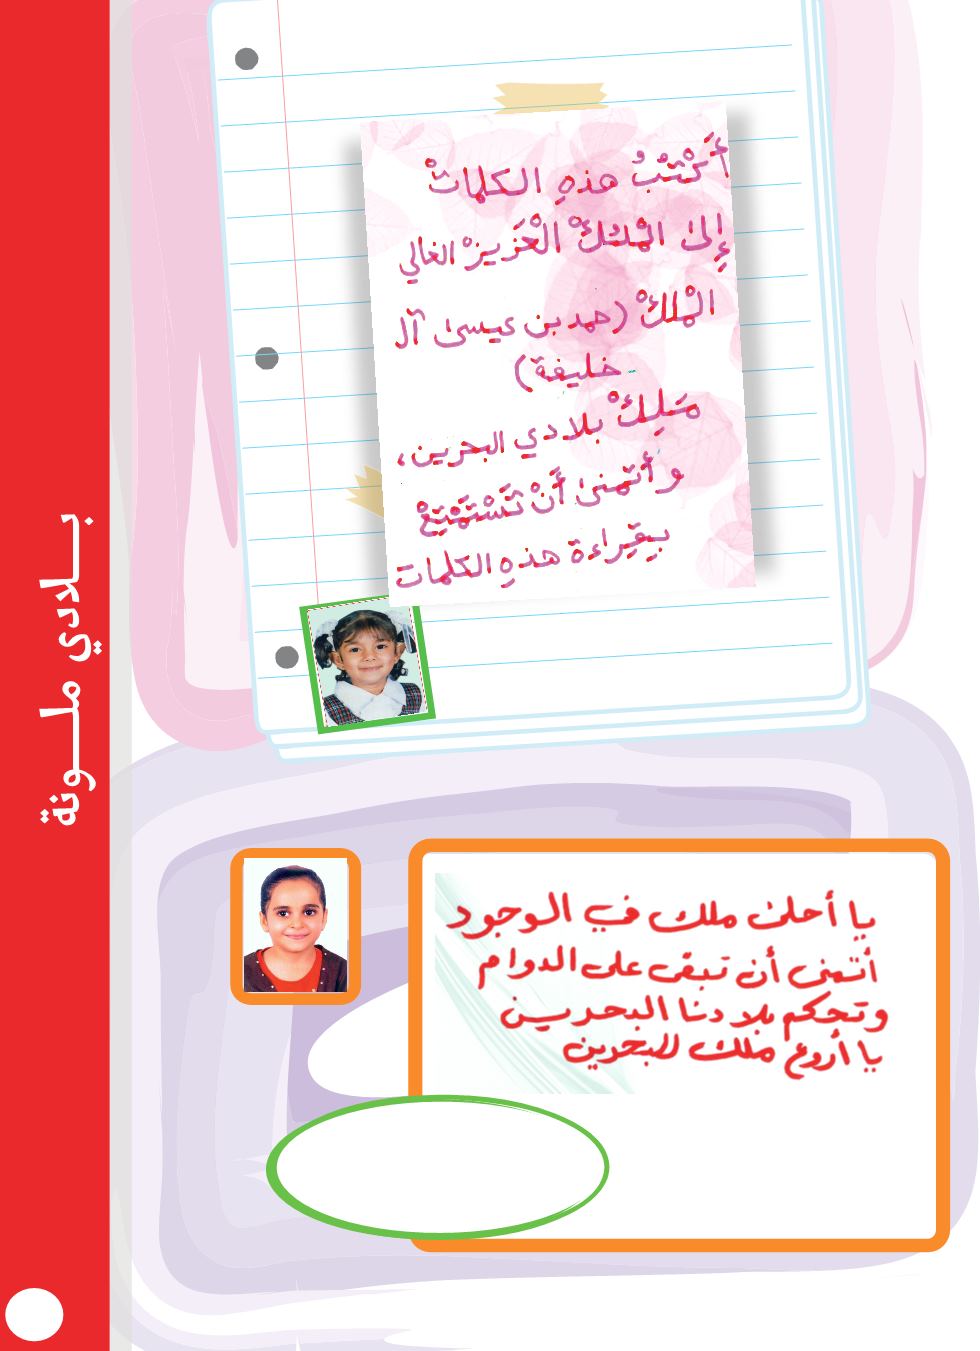 أَكْتُبُ هذهِ الكلماتْ
إِلىَ الْمَلكْ الْعَزيزْ الغالي
الْملكْ (حمد بن عيسىٰ آل
خليفة)
مَلِكْ بلادي البحرين،
و أتمنىٰ أَنْ تَسْتَمْتِعْ
بِقِراءة هذهِ الكلمات
بــلادي ملــونة
يا أحلى ملك في الوجود
أتمنى أن تبقى على الدوام
وتحكم بلادنا البحرين
يا أروع ملك للبحرين